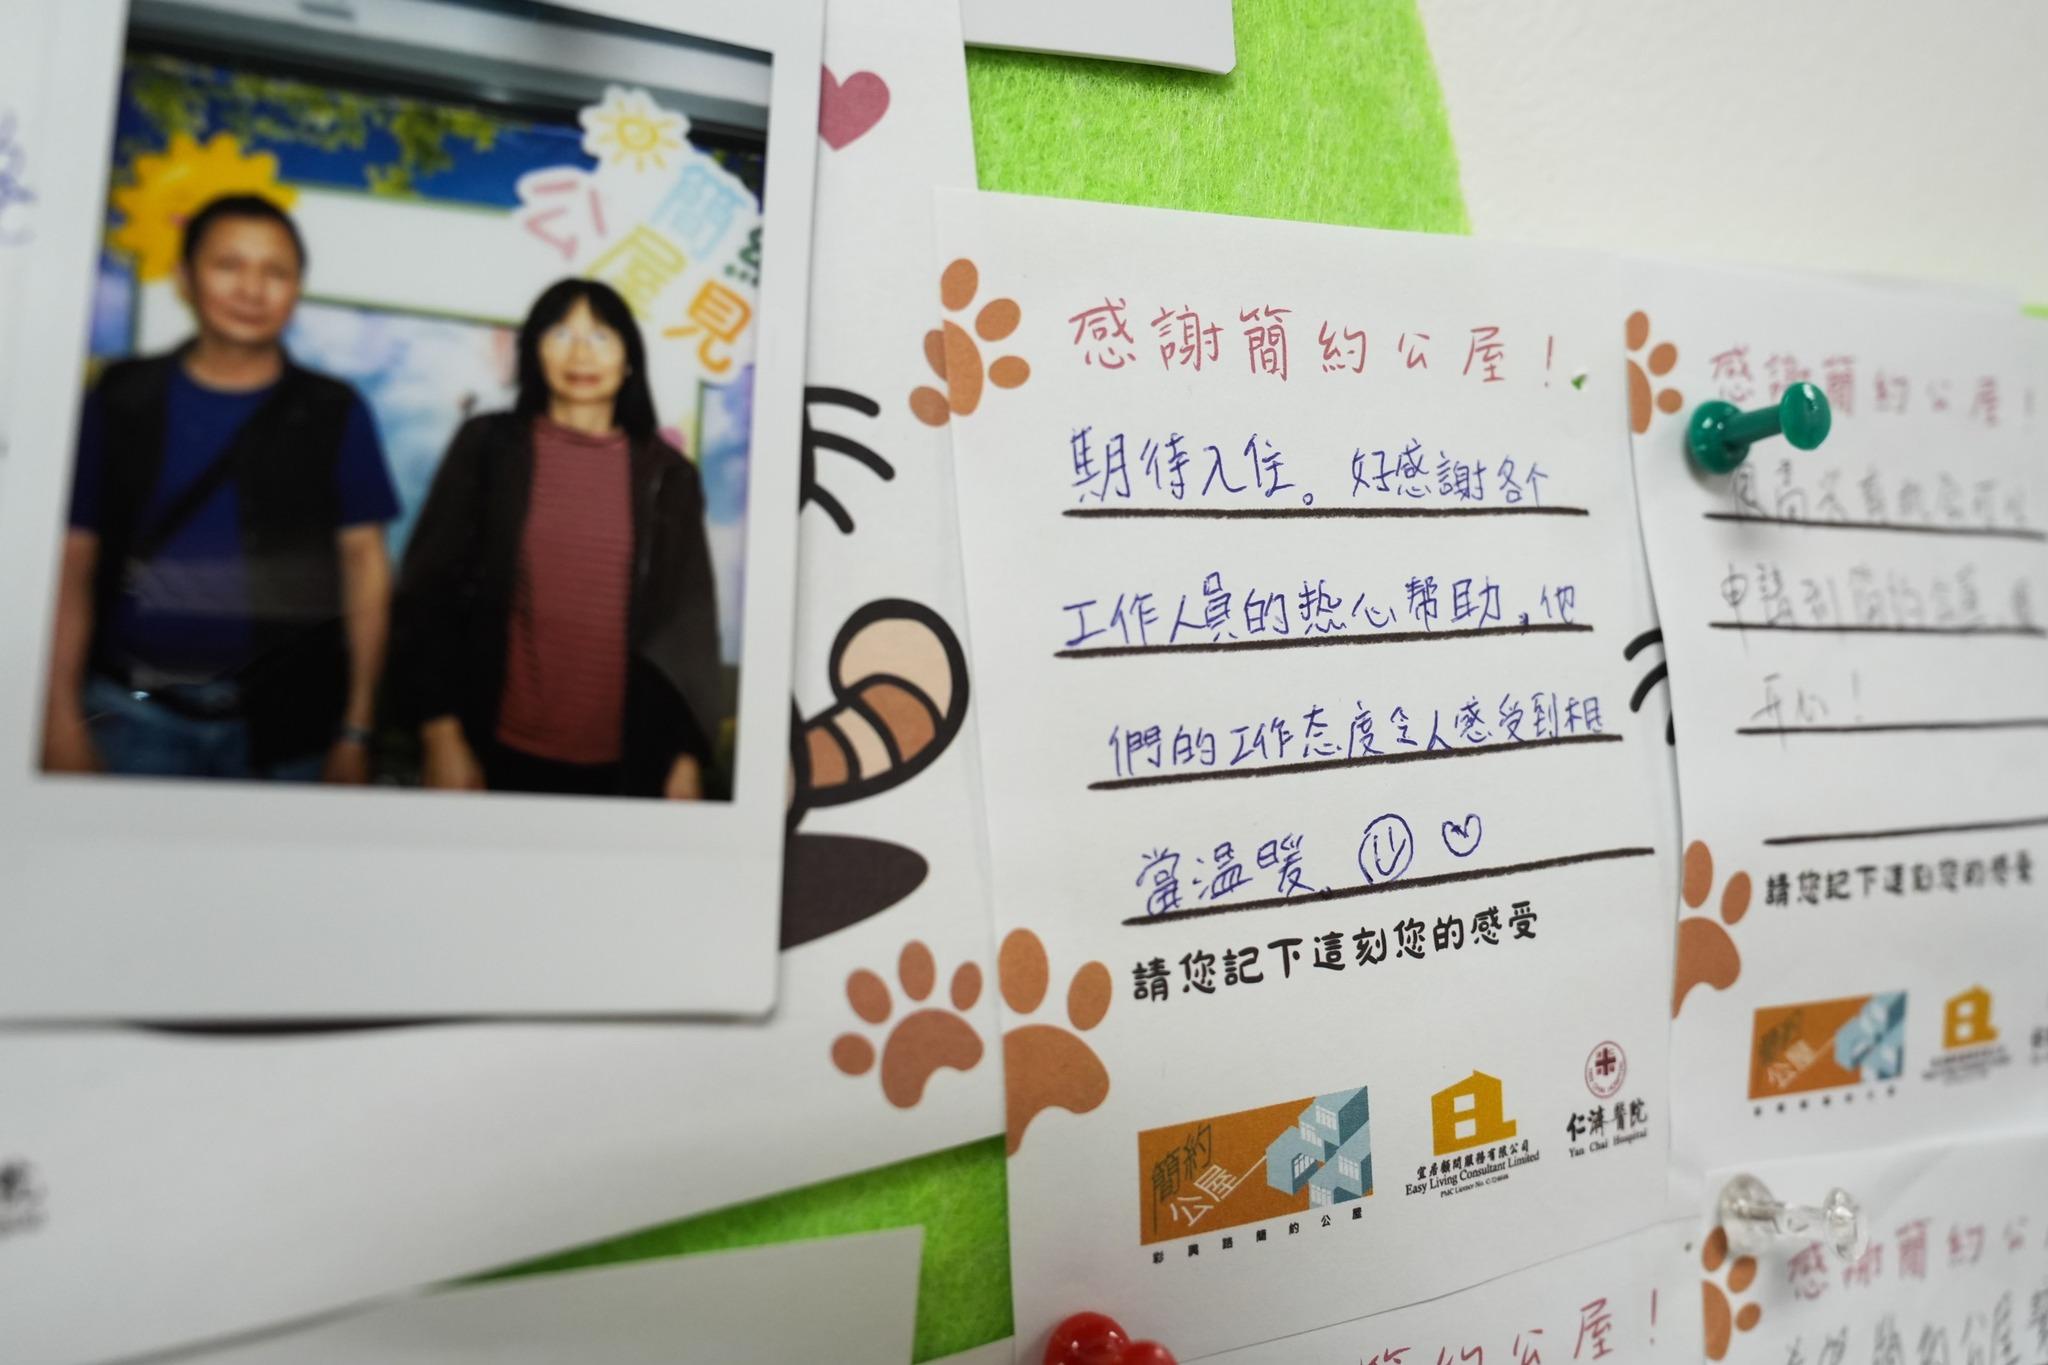 簡約
公屋見
感謝簡約公屋！
期待入住。好感謝各个
工作人員的热心帮助，他
們的工作态度令人感受到相
當温暖。
請您記下這刻您的感受
簡約
公屋
彩興路簡約公屋
宜居顧問服務有限公司
Easy Living Consultant Limited
仁濟醫院
Yan Chai Hospital
感謝簡約公屋！
申請到簡約公屋
開心！
請您記下這刻您的感受
簡約
公屋
感謝簡約公
簡約公屋！